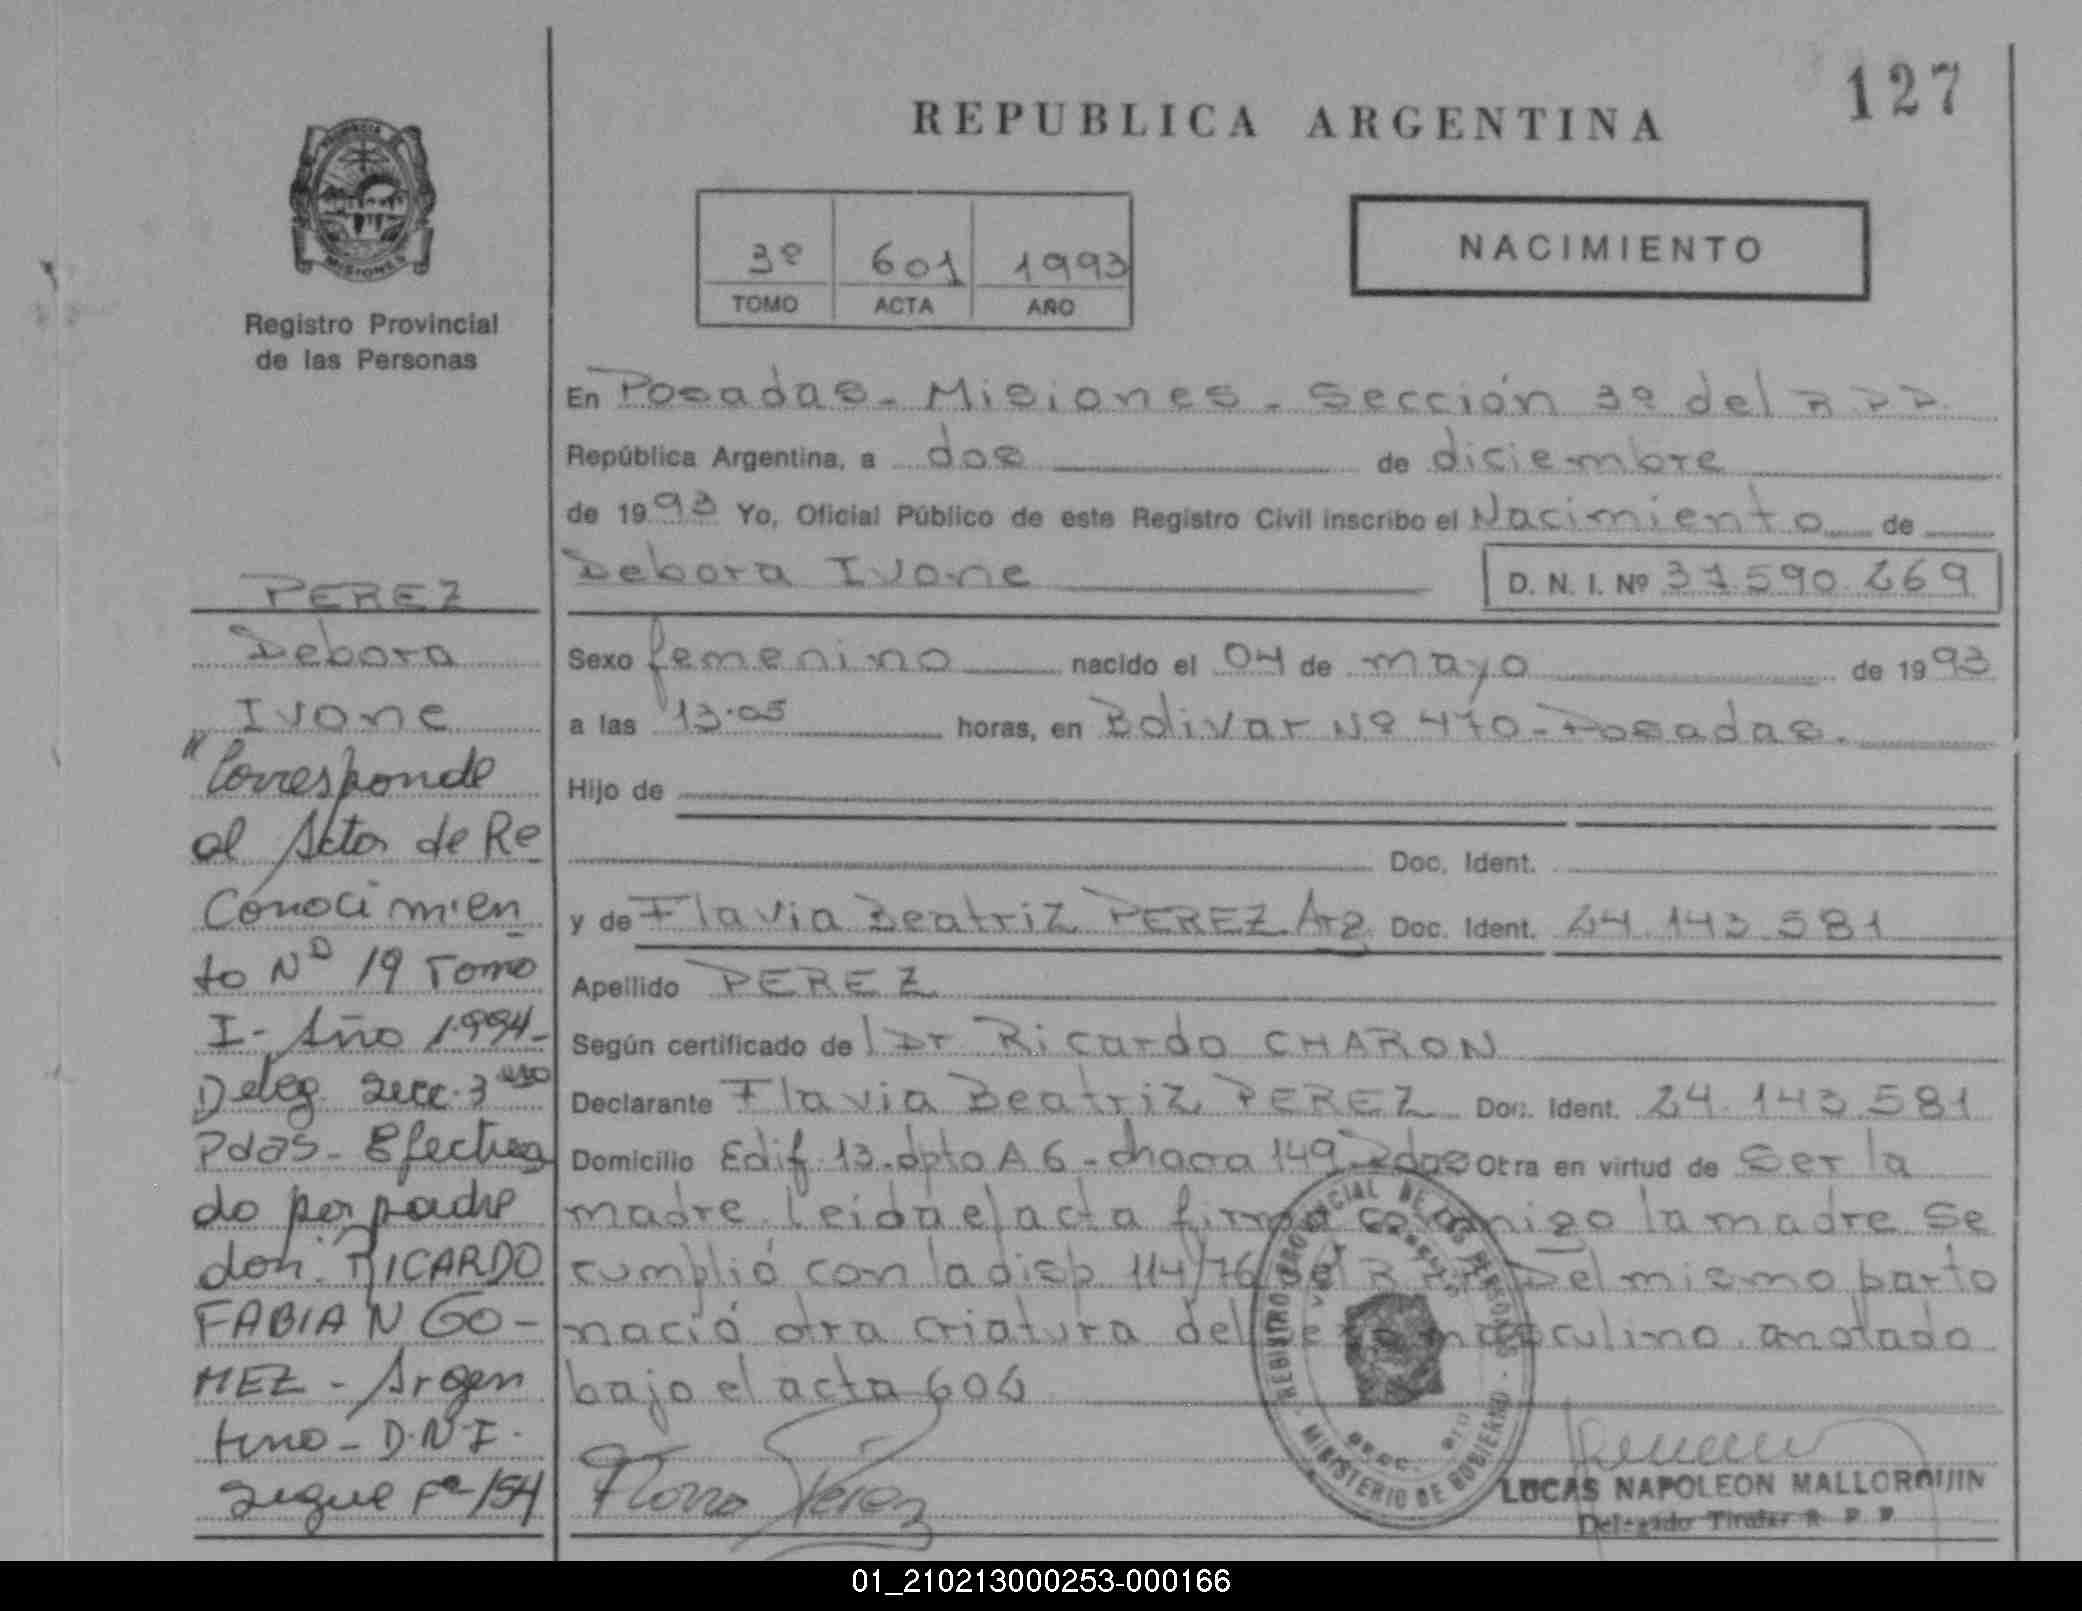 127
REPUBLICA ARGENTINA
PROVINCIA
MISIONES
Registro Provincial
de las Personas
3º 601 1993
TOMO ACTA AÑO
NACIMIENTO
En Posadas - Misiones - Sección 3º del R.P.P.
República Argentina, a dos de diciembre
de 1993 Yo, Oficial Público de este Registro Civil inscribo el Nacimiento de
Debora Ivone D. N. I. Nº 37.590.269
Sexo femenino nacido el 04 de mayo de 1993
a las 13.05 horas, en Bolivar Nº 470 - Posadas.
Hijo de
Doc. Ident.
y de Flavia Beatriz PEREZ Arg. Doc. Ident. 24.143.581
Apellido PEREZ
Según certificado de Dr Ricardo CHARON
Declarante Flavia Beatriz PEREZ Doc. Ident. 24.143.581
Domicilio Edif. 13 - dpto A 6 - chacra 149 - Pdas Otra en virtud de Ser la
madre. Leída el acta firma conmigo la madre Se
cumplió con la disp 114/76 del R.P.P. Del mismo parto
nació otra criatura del sexo masculino anotado
bajo el acta
PEREZ
Debora
Ivone
"Corresponde
al Acta de Re
Conocimien
to Nº 19 Tomo
I - Año 1.994 -
Deleg. Secc. 3
Pdas - Efectua
do por padre
don: RICARDO
FABIAN GO-
MEZ - Argen
tino - D.N.I.
Sigue Fº 154
Perez
REGISTRO PROVINCIAL DE LAS PERSONAS - MINISTERIO DE GOBIERNO
LUCAS NAPOLEON MALLORQUIN
Delegado Titular R P P
01_210213000253-000166